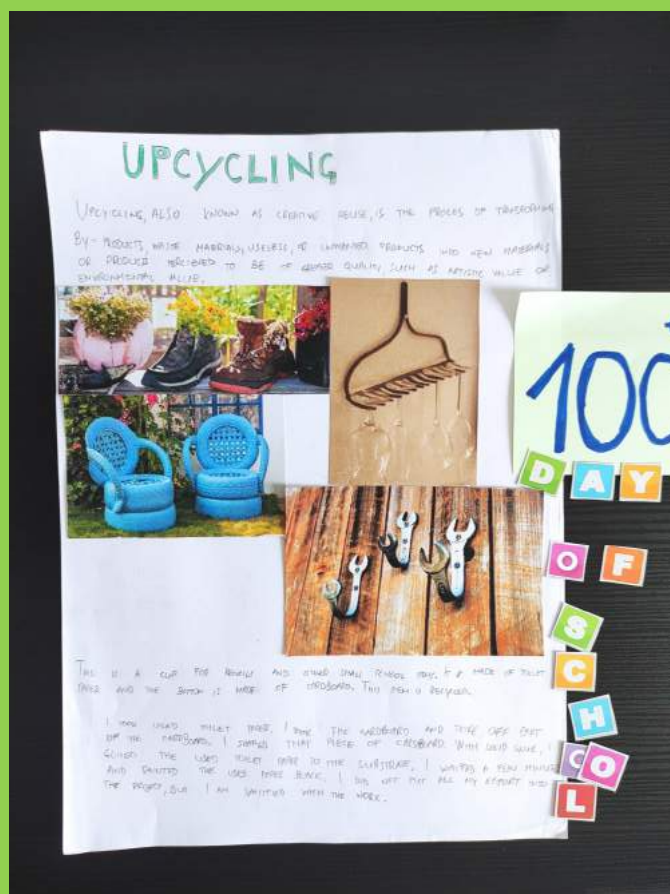 UPCYCLING
UPCYCLING, ALSO KNOWN AS CREATIVE REUSE, IS THE PROCES OF TRANSFORMING
BY-PRODUCTS, WASTE MATERIALS, USELESS, OR UNWANTED PRODUCTS INTO NEW MATERIALS
OR PRODUCTS PERCIEVED TO BE OF GREATER QUALITY, SUCH AS ARTISTIC VALUE OR
ENVIRONMENTAL VALUE.
100
DAY
OF
SCHOOL
THIS IS A CUP FOR PENCILS AND OTHER SMALL SCHOOL ITEMS. IT IS MADE OF TOILET
PAPER AND THE BOTTOM IS MADE OF CARDBOARD. THIS ITEM IS RECYCLED.
I TOOK USED TOILET PAPER. I TOOK THE CARDBOARD AND TORE OFF PART
OF THE CARDBOARD. I THAT PIECE OF CARDBOARD WITH LIQUID GLUE, I
GLUED THE USED TOILET PAPER TO THE SUBSTRATE. I WAITED A FEW MINUTES
AND PAINTED THE USED PAPER BLACK. I DID NOT PUT ALL MY EFFORT INTO
THE PROJECT, BUT I AM SATISFIED WITH THE WORK.